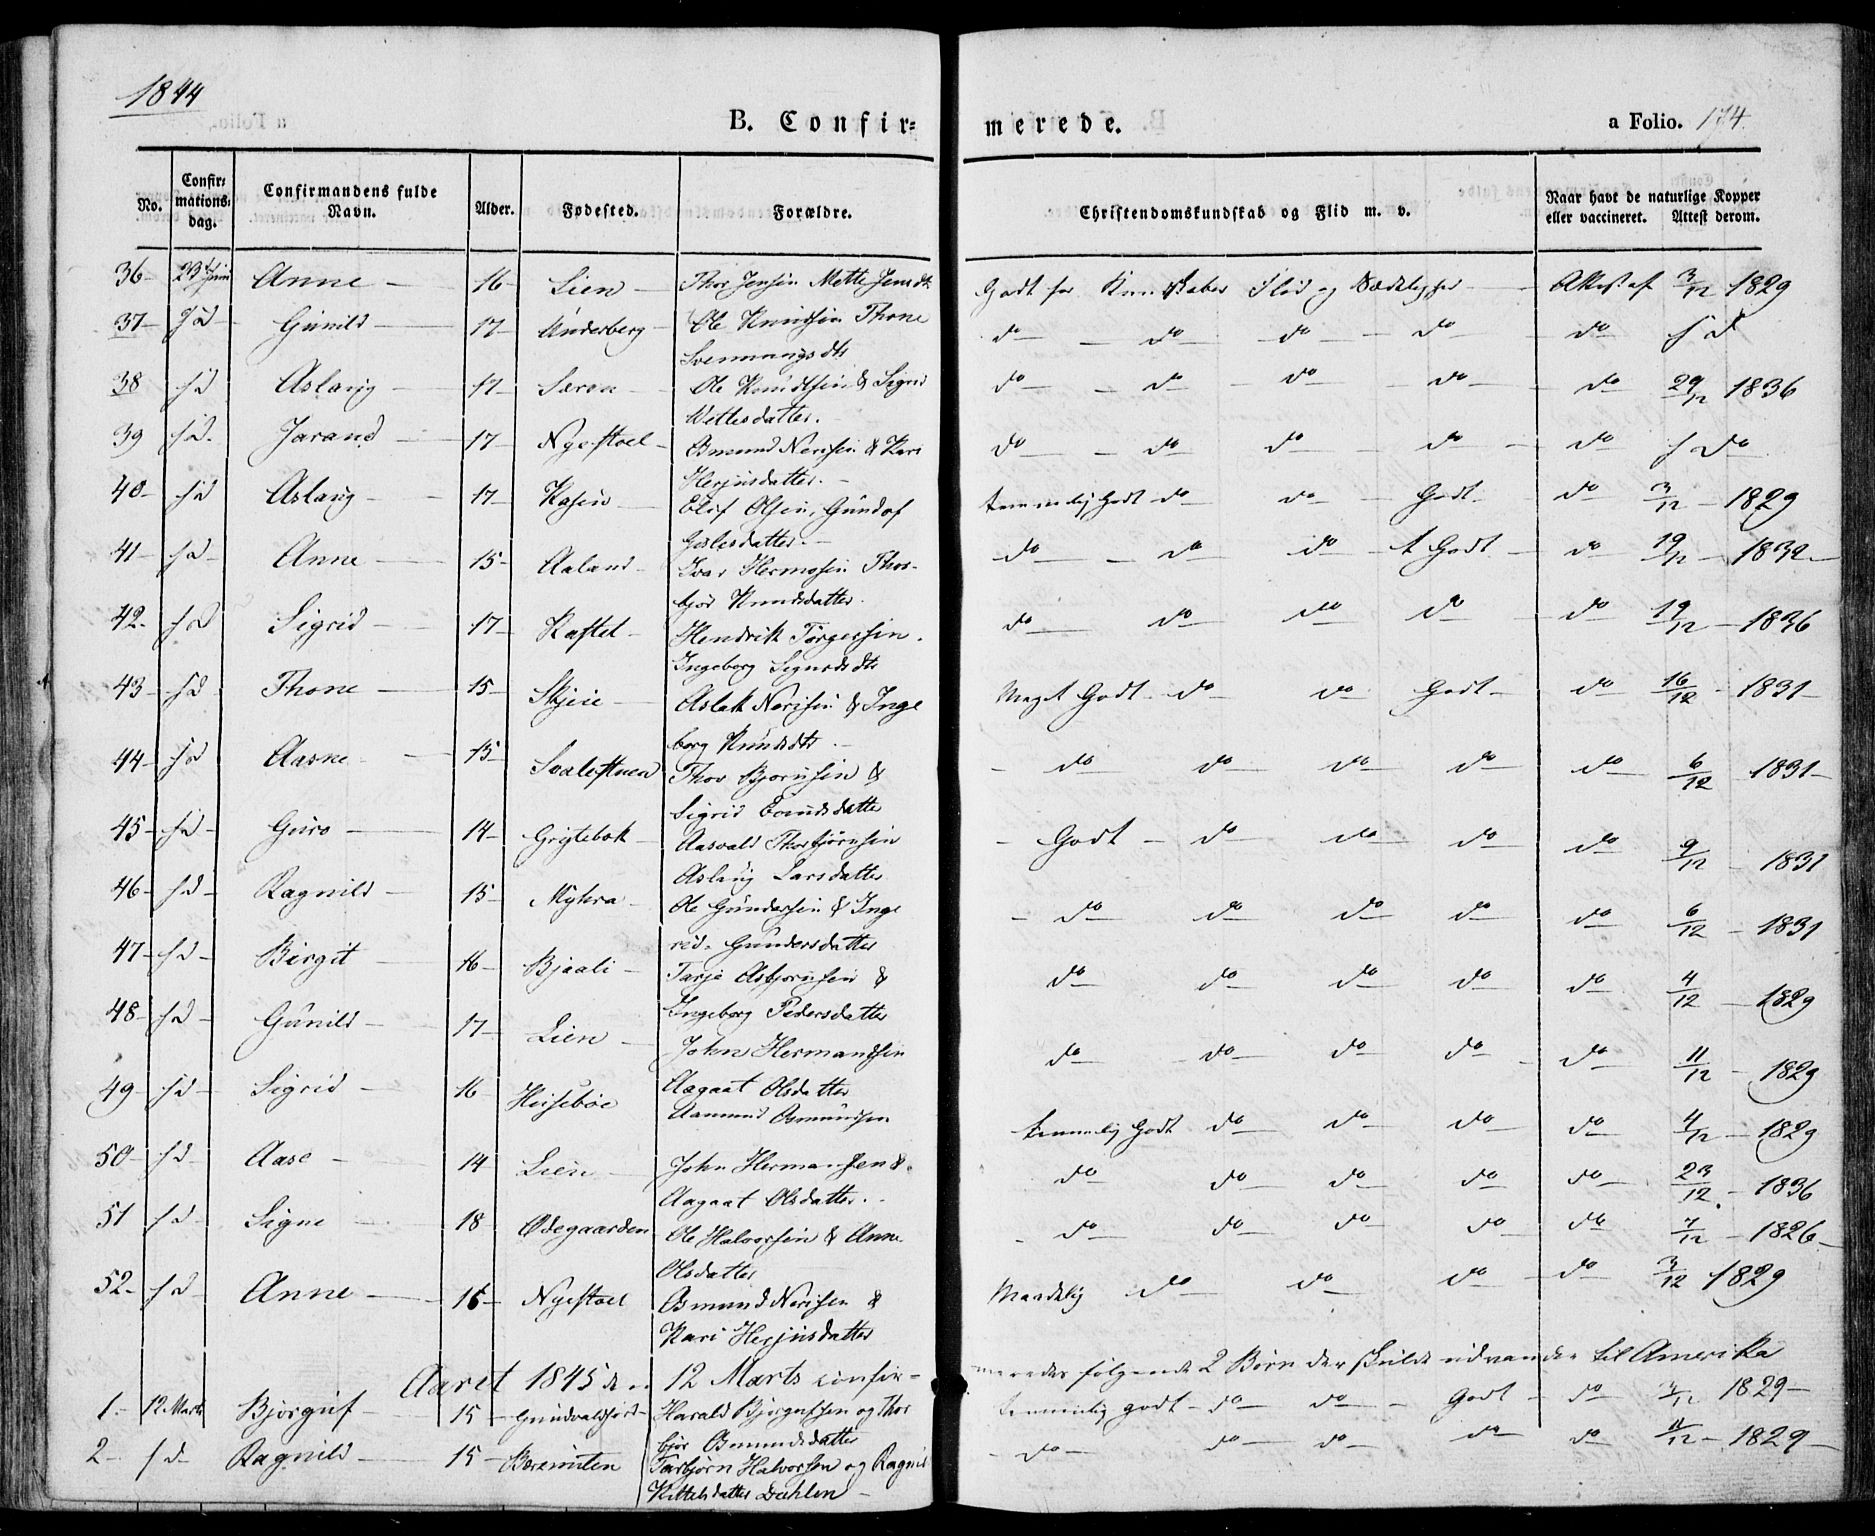 1844
B. Confir= merede. a Folio. 174.
No. Confir= mations= dag. Confirmandens fulde Navn. Alder. Fødested. Forældre. Christendomskundskab og Flid m. v. Naar havt de naturlige Kopper eller vaccineret. Attest derom.
36 – 29 Juni Anne – 16 – Lien – Thor Jensen Mette Jensdtr Godt for Kundskaber Flid og Sædelighed – Attest af 3/12 1829
37 – sd – Gunild – 17 – Underberg – Ole Knudsen Thone do – do – do – do – do sd
Svennungsdtr
38 sd Aslaug – 17 – Særen – Ole Knudtsen & Sigrid do – do – do – do – do 29/12 1836
Vettesdatter.
39 sd. Jarand – 17 – Nyestoel – Osmund Nerisen & Kari do – do do – do – do sdo
Herjusdatter. –
40 – sd Aslaug – 17 – Kasin – Elef Olsen, Gundof temmelig Godt do do – Godt – do 3/12 – 1829
Gislesdatter. –
41 – sd – Anne – 15 – Aaland – Ivar Hermosen Thor- do – do do – t Godt – do 19/12 – 1832 –
bjør Knudsdatter.
42 – sd Sigrid – 17 – Kaftel – Hendrik Torgersen. do – do do do – do 19/12 – 1836
Ingeborg Sigurdsdtr
43 – sd – Thone – 15 – Skjeie – Aslak Nerisen & Inge Meget Godt – do do Godt – do 16/12 – 1831 –
borg Knudsdtr. –
44 – sd Aasne – 15 – Svalestuen Thov Bjornsen & – do do do do do 6/12 – 1831 –
Sigrid Evindsdatter
45 – sd – Guro – 14 – Grigtebok – Aasvald Thorbjørnsen – Godt – do do do do 9/12 – 1831
Aslaug Larsdatter
46 – sd – Ragnild – 15 – Myhra – Ole Gundersen & Inge – do do do do do 6/12 – 1831
red. Gundersdatter
47 – sd – Birgit – 16 – Bjaali – Tarje Asbjørnsen & do do do do do 4/12 – 1829
Ingeborg Pedersdatter
48 – sd – Gunild – 17 – Lien – John Hermandsen do – do do do – do 11/12 – 1829
Aagaat Olsdatter
49 – sd – Sigrid – 16 – Heisebøe Aamund Osmundsen temmelig Godt do do do do 4/12 – 1829
50 – sd – Aase – 14 – Lien – John Hermansen & do do do do do – 23/12 – 1836
Aagaat Olsdatter. –
51 sd – Signe – 18 – Ødegaarden Ole Halvorsen & Anne – do do do do do 7/12 – 1826 –
Olsdatter
52 – sd – Anne – 16 – Nyestoel Osmund Nerisen & Maadelig do do do – do 3/12 1829
Kari Herjusdatter
Aaret 1845 den 12 Marts confir= meredes følgende 2 Børn der skulde udvandre til Amerika
1. – 12 Marts Bjørguf – 15 – Grundvaldsjord – Harald Bjørgufsen og Thor temmelig godt – do do – Godt – do 3/12 1829 –
bjør Osmundsdatter
2 – sd – Ragnild – 15 – Torbjørn Halvorsen og Ragnil – do – do – do – do do 11/12 – 1829 –
Kittelsdatter Dæhlen –